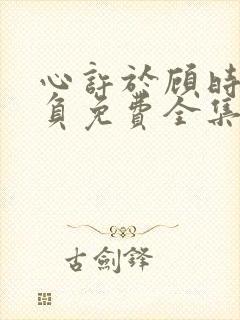 心許於顾時
負免費全集
古劍鋒